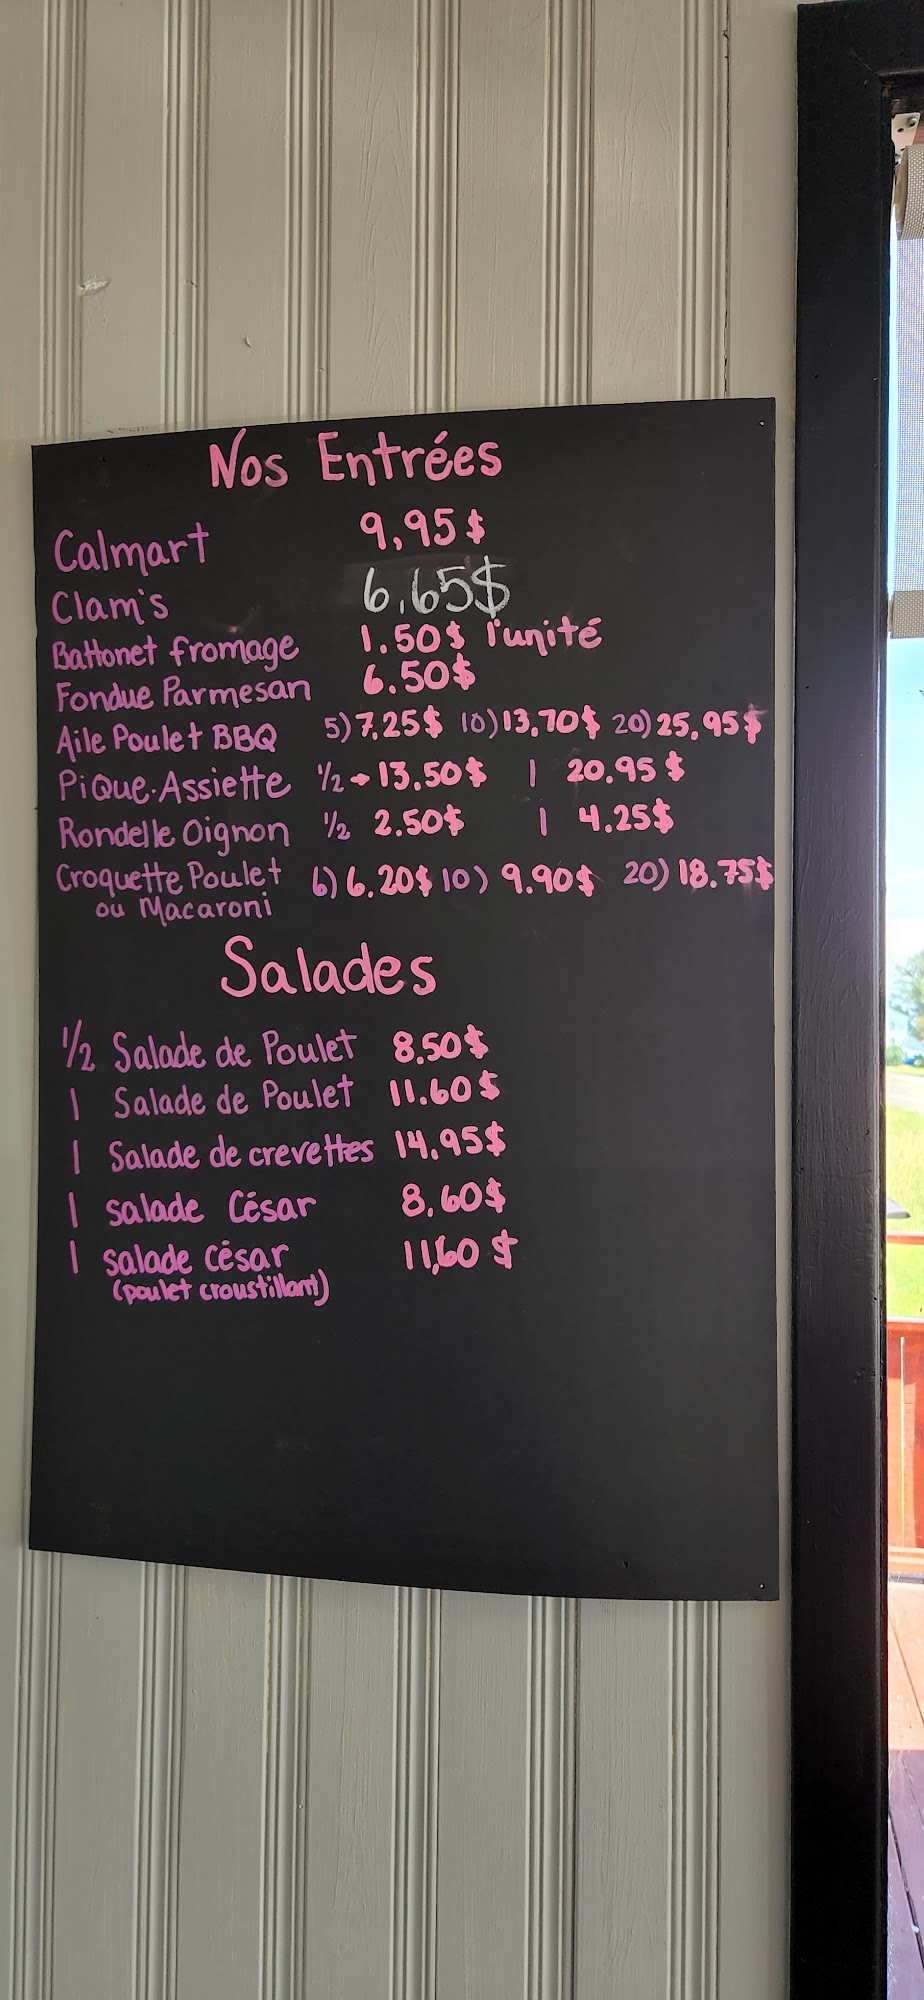 Nos Entrées
Calmart 9,95$
Clam's 6.65$
Battonet fromage 1.50$ l'unité
Fondue Parmesan 6.50$
Aile Poulet BBQ 5) 7.25$ 10) 13,70$ 20) 25,95$
Pique-Assiette 1/2 → 13,50$ 1 20.95$
Rondelle Oignon 1/2 2.50$ 1 4.25$
Croquette Poulet 6) 6.20$ 10) 9.90$ 20) 18.75$
ou Macaroni
Salades
1/2 Salade de Poulet 8.50$
1 Salade de Poulet 11.60$
1 Salade de crevettes 14,95$
1 salade César 8,60$
1 salade césar 11,60$
(poulet croustillant)